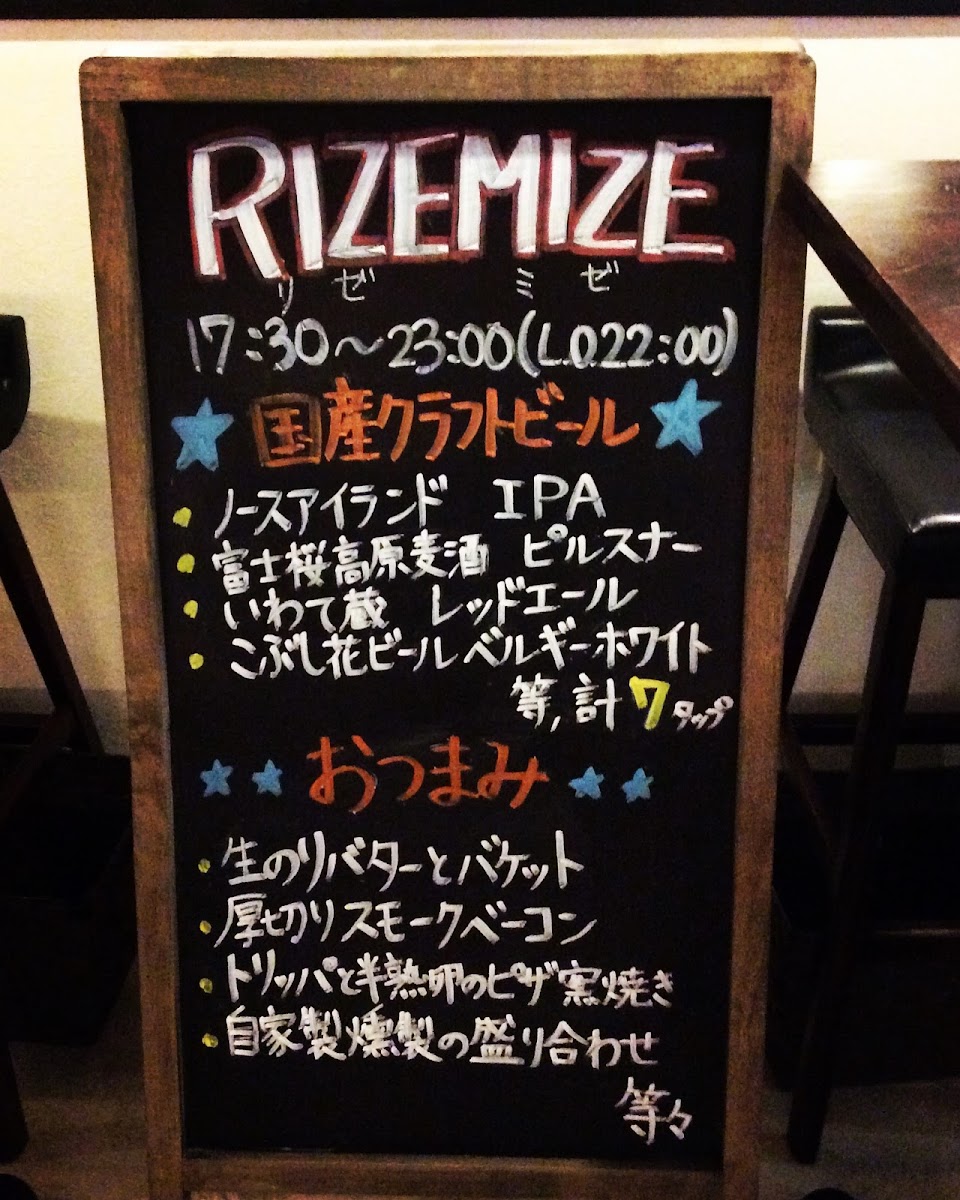 RIZEMIZE
リゼ ミゼ
17:30～23:00(L.O22:00)
国産クラフトビール
ノースアイランド IPA
富士桜高原麦酒 ピルスナー
いわて蔵 レッドエール
こぶし花ビール ベルギーホワイト
等,計7タップ
おつまみ
生のりバターとバケット
厚切りスモークベーコン
トリッパと半熟卵のピザ窯焼き
自家製燻製の盛り合わせ
等々